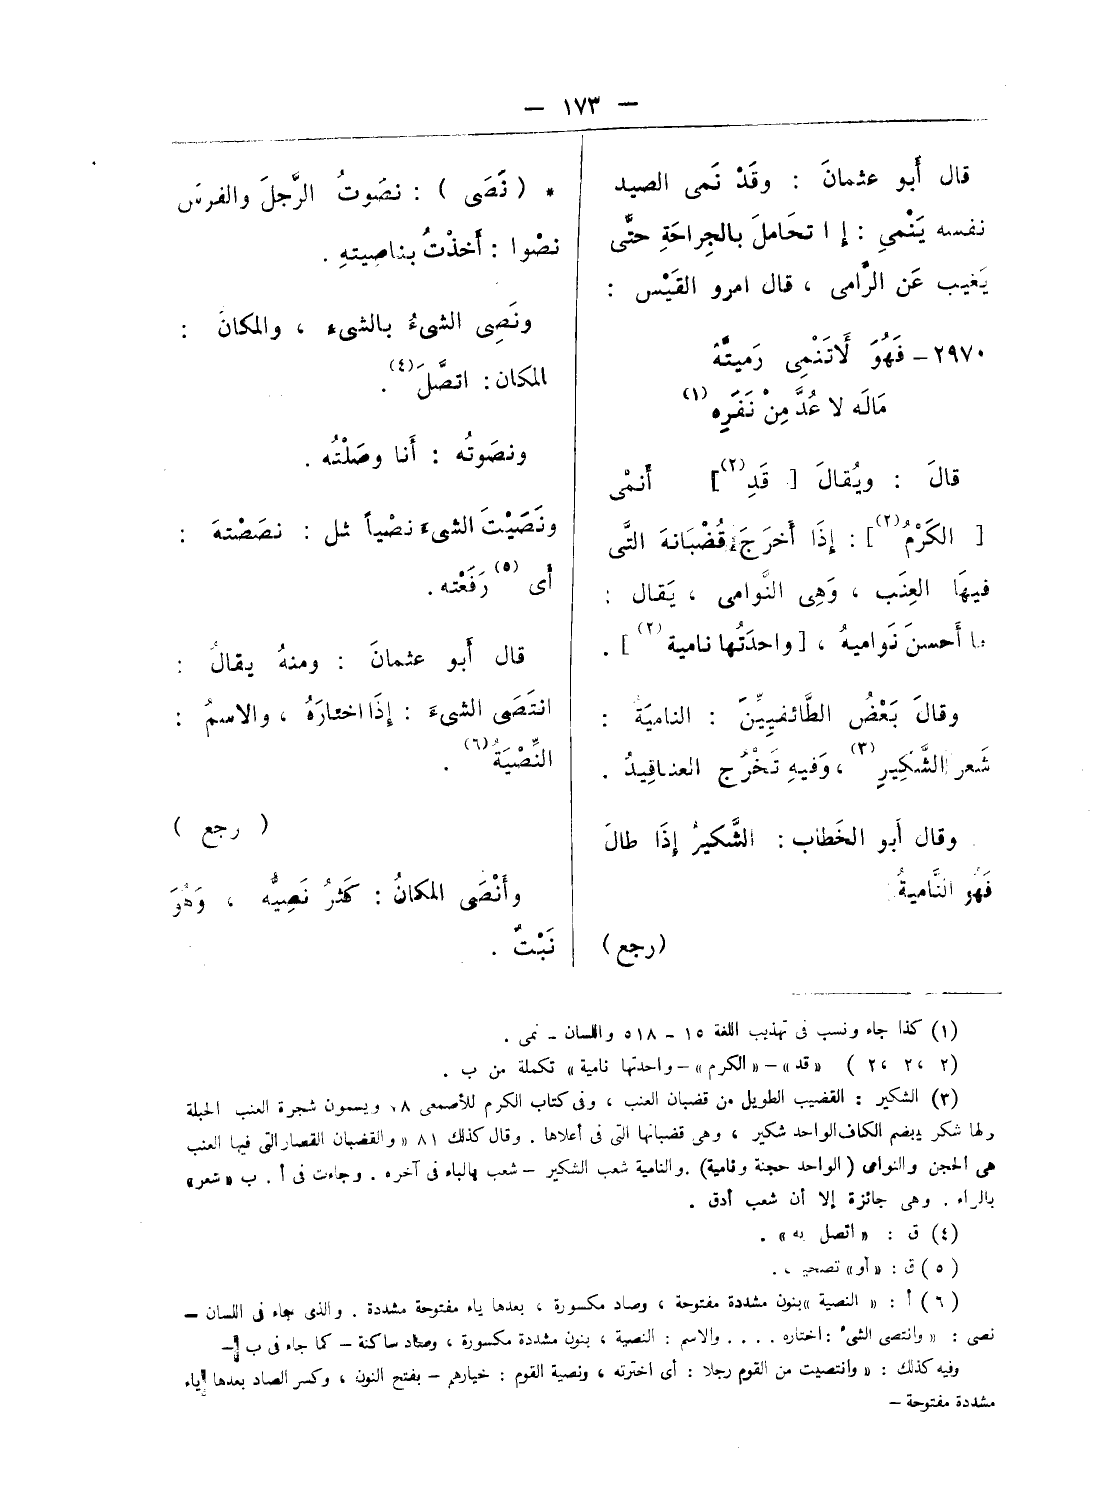 — ١٧٣ —
قال أَبو عثمانَ : وقَدْ نَمى الصيد
نفسه يَنْمِي : إ ا تحَاملَ بالجِراحَةِ حتَّى
يَغيب عَن الرَّامى ، قال امرو القَيْس :
٢٩٧٠ – فَهُوَ لَاتَنْمِى رَميتُهُ
مَالَه لا عُدَّ مِنْ نَفَرِه (١)
قالَ : ويُقالَ [ قَدِ (٢) ] أَنمْى
[ الكَرْمُ (٢) ] : إِذَا أَخرَجَ قُضْبَانهَ التَّى
فيهَا العِنَب ، وَهِى النَّوامى ، يَقال :
ما أَحسنَ نَواميهُ ، [ واحدَتُها نامية (٢) ] .
وقالَ بَعْضُ الطَّائفيِيِّنَ : الناميَة :
شَعر الشَّكِيرِ (٣) ، وَفيهِ تَخْرُج العناقِيدُ .
وقال أَبو الخَطاب : الشَّكيرُ إِذَا طالَ
فَهُو النَّاميةُ
(رجع)
* ( نَصَى ) : نصَوتُ الرَّجلَ والفرسَ
نصْوا : أَخذْتُ بناصِيتهِ .
ونَصِى الشىءُ بالشىء ، والمكانُ :
المكان : اتصَّلَ (٤) .
ونصَوتُه : أَنا وصَلْتُه .
ونَصَيْتَ الشىءَ نصْياً مثل : نصَصْتهَ :
أَى (٥) رَفَعْته .
قال أَبو عثمانَ : ومنهُ يقالُ :
انتَصَى الشىءَ : إِذَا اختارَهُ ، والاسمُ :
النِّصْيَةُ (٦) .
( رجع )
وأَنْصَى المكانُ : كَثرُ نَصِيُّه ، وَهُوَ
نَبْتٌ .
(١) كذا جاء ونسب فى تهذيب اللغة ١٥ – ٥١٨ واللسان – نمى .
(٢ ،٢ ،٢ ) «قد» – «الكرم» – واحدتها نامية» تكملة من ب .
(٣) الشكير : القضيب الطويل من قضبان العنب ، وفى كتاب الكرم للأصمعى ٨١ ويسمون شجرة العنب الحبلة
ولها شكر بضم الكاف الواحد شكير ، وهى قضبانها التى فى أعلاها . وقال كذلك ٨١ «والقضبان القصار التى فيها العنب
هى الحجن والنوامى (الواحد حجنة ونامية) . والنامية شعب الشكير – شعب بالباء فى آخره . وجاءت فى أ . ب «شعر»
بالراء . وهى جائزة إلا أن شعب أدق .
(٤) ق : «اتصل به» .
(٥) ق : «أو» تصحيف .
(٦) أ : « النصية »بنون مشددة مفتوحة ، وصاد مكسورة ، بعدها ياء مفتوحة مشددة . والذى جاء فى اللسان –
نصى : « وانتصى الشىء : اختاره . . . . والاسم : النصية ، بنون مشددة مكسورة ، وصاد ساكنة – كما جاء فى ب –
وفيه كذلك : « وانتصيت من القوم رجلا : أى اخترته ، ونصية القوم : خيارهم – بفتح النون ، وكسر الصاد بعدها ياء
مشددة مفتوحة –